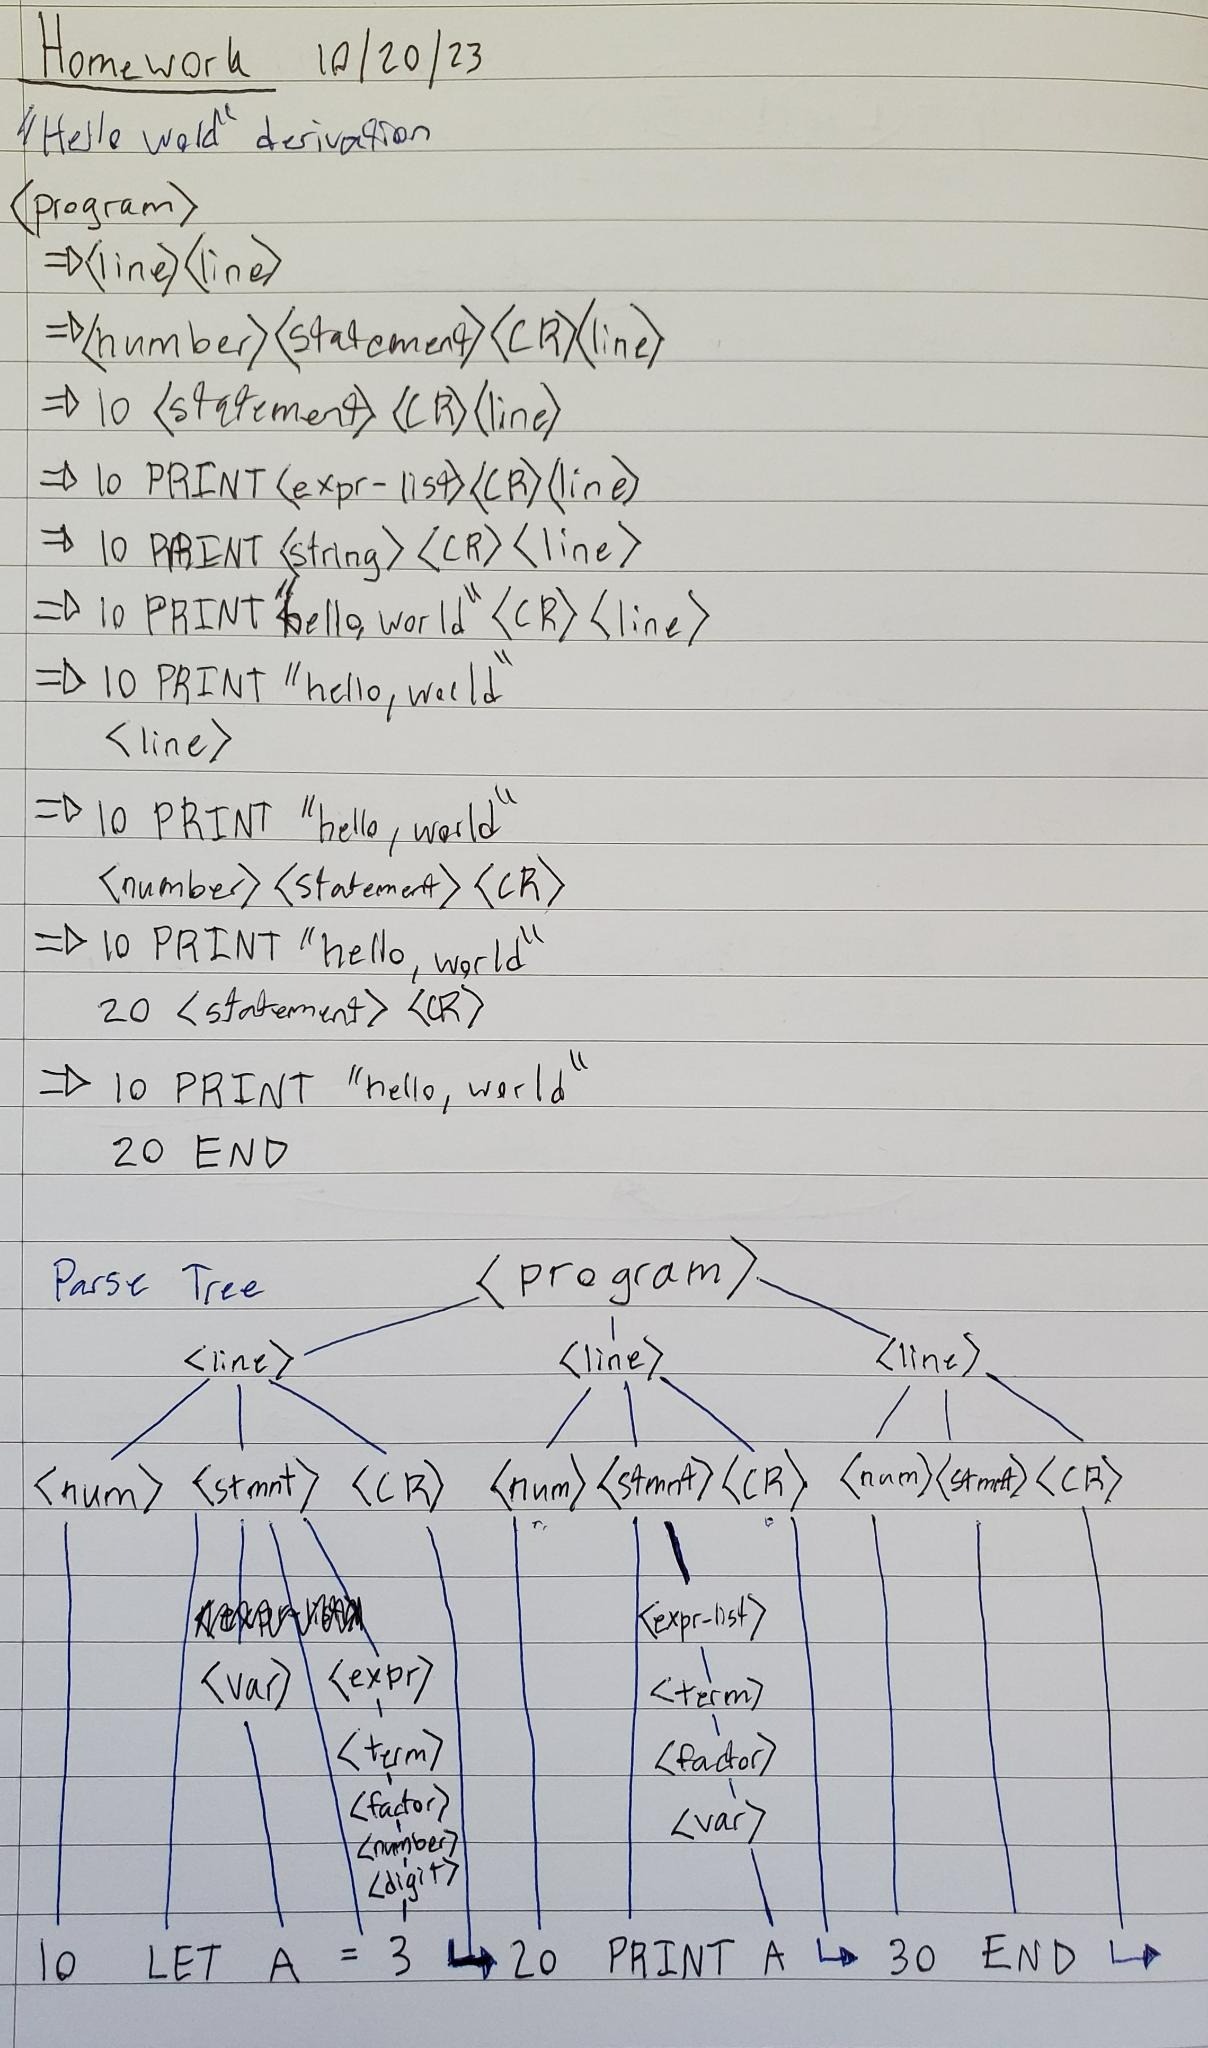 Homework 10/20/23
"Hello wold" derivation
<program>
⇒<line><line>
⇒<number><statement><CR><line>
⇒ 10 <statement> <CR><line>
⇒ 10 PRINT <expr-list><CR><line>
⇒ 10 PRINT <string> <CR> <line>
⇒ 10 PRINT "hello, world" <CR> <line>
⇒ 10 PRINT "hello, world"
<line>
⇒ 10 PRINT "hello, world"
<number> <statement> <CR>
⇒ 10 PRINT "hello, world"
20 <statement> <CR>
⇒ 10 PRINT "hello, world"
20 END
Parse Tree <program>
<line> <line> <line>
<num> <stmnt> <CR> <num> <stmnt> <CR> <num> <stmnt> <CR>
<expr-list>
<var> <expr> <term>
<term> <factor>
<factor> <var>
<number>
<digit>
10 LET A = 3 ↳ 20 PRINT A ↳ 30 END ↳